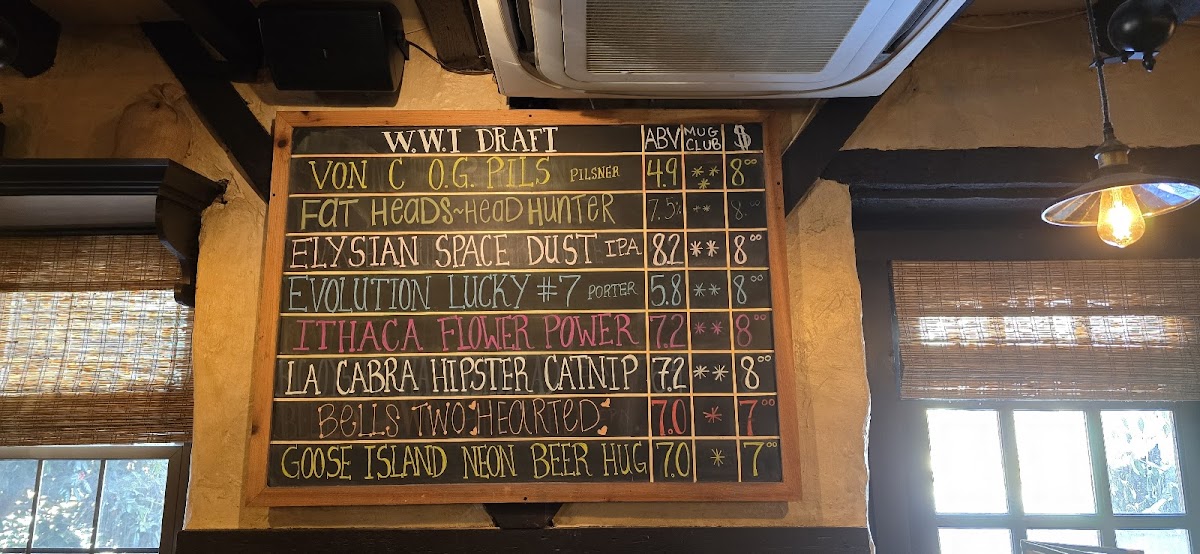 W.W.I DRAFT ABV MUG CLUB $
VON C O.G. PILS PILSNER 4.9 *** 8.00
FAT HEADS~HEAD HUNTER 7.5% ** 8.00
ELYSIAN SPACE DUST IPA 8.2 ** 8.00
EVOLUTION LUCKY #7 PORTER 5.8 ** 8.00
ITHACA FLOWER POWER 7.2 ** 8.00
LA CABRA HIPSTER CATNIP 7.2 ** 8.00
BELLS TWO HEARTED 7.0 * 7.00
GOOSE ISLAND NEON BEER HUG 7.0 * 7.00